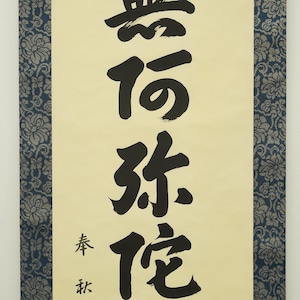 無阿弥陀
奉秋